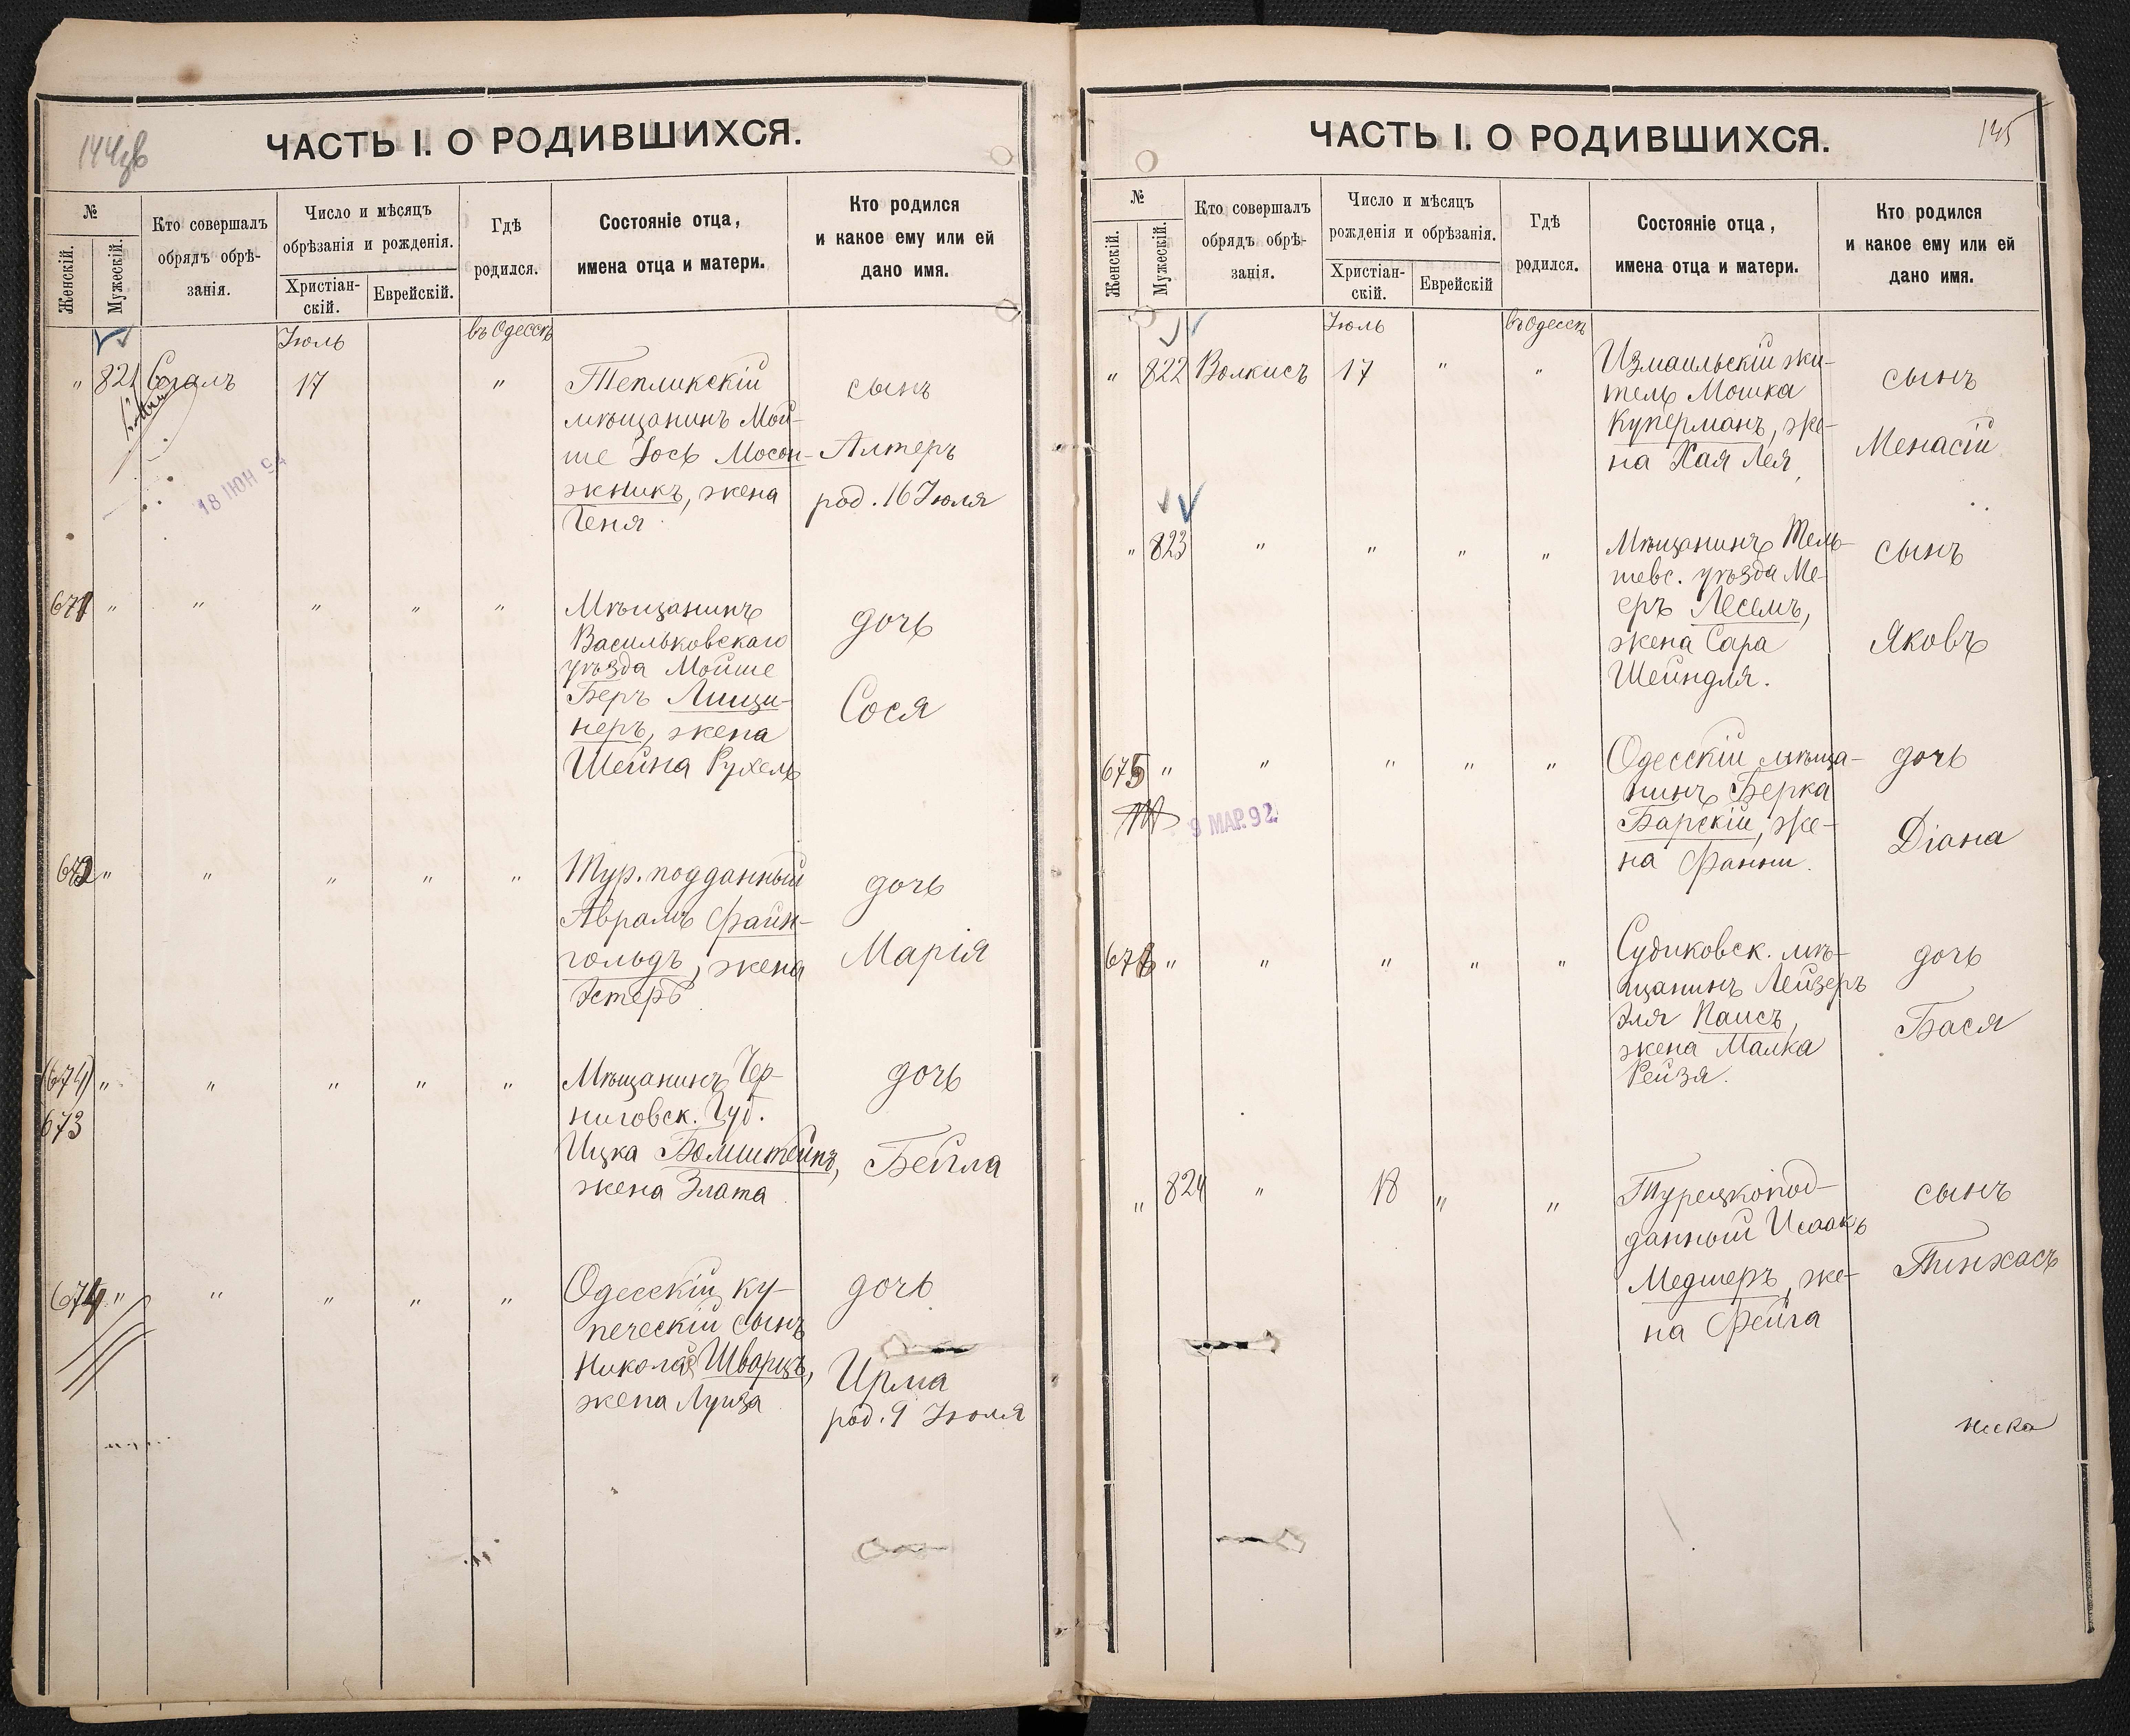 144об
ЧАСТЬ I. О РОДИВШИХСЯ.
№
Женскій.
Мужескій.
Кто совершалъ
обрядъ обрѣ-
занія.
Число и мѣсяцъ
обрѣзанія и рожденія.
Христіан-
скій.
Еврейскій.
Гдѣ
родился.
Состояніе отца,
имена отца и матери.
Кто родился
и какое ему или ей
дано имя.
Іюль
въ Одессѣ
" 821 Сегалъ 17 "
18 ІЮН 94
Тепликскій
мѣщанинъ Мой-
ше Іось Мосон-
жникъ, жена
Геня
сынъ
Алтеръ
род. 16 Іюля
671 " " " " "
Мѣщанинъ
Васильковскаго
уѣзда Мойше
Беръ Лищи-
неръ, жена
Шейна Рухель
дочь
Сося
672 " " " " "
Тур. подданный
Аврамъ Файн-
гольдъ, жена
Эстеръ
дочь
Марія
(674) " " " " "
673
Мѣщанинъ Чер-
ниговск. Губ.
Ицка Бомштейнъ,
жена Злата
дочь
Бейла
674 " " " " "
Одесскій ку-
печескій сынъ
Николай Шварцъ,
жена Луиза
дочь
Ирма
род. 9 Іюля
145
ЧАСТЬ I. О РОДИВШИХСЯ.
№
Женскій.
Мужескій.
Кто совершалъ
обрядъ обрѣ-
занія.
Число и мѣсяцъ
рожденія и обрѣзанія.
Христіан-
скій.
Еврейскій
Гдѣ
родился.
Состояніе отца,
имена отца и матери.
Кто родился
и какое ему или ей
дано имя.
Іюль
въ Одессѣ
" 822 Волкисъ 17 " "
Измаильскій жи-
тель Мошка
Куперманъ, же-
на Хая Лея,
сынъ
Менасій
" 823 " " " "
Мѣщанинъ Тель-
шевс. уѣзда Ме-
еръ Лесемъ,
жена Сара
Шейндля.
сынъ
Яковъ
675 " " " " "
9 МАР. 92
Одесскій мѣща-
нинъ Берка
Барскій, же-
на Фанни.
дочь
Діана
676 " " " " "
Судиковск. мѣ-
щанинъ Лейзеръ
Эля Паисъ,
жена Малка
Рейзя.
дочь
Бася
" 824 " 18 " "
Турецкопод-
данный Исаакъ
Медшеръ, же-
на Фейга
сынъ
Пинхасъ